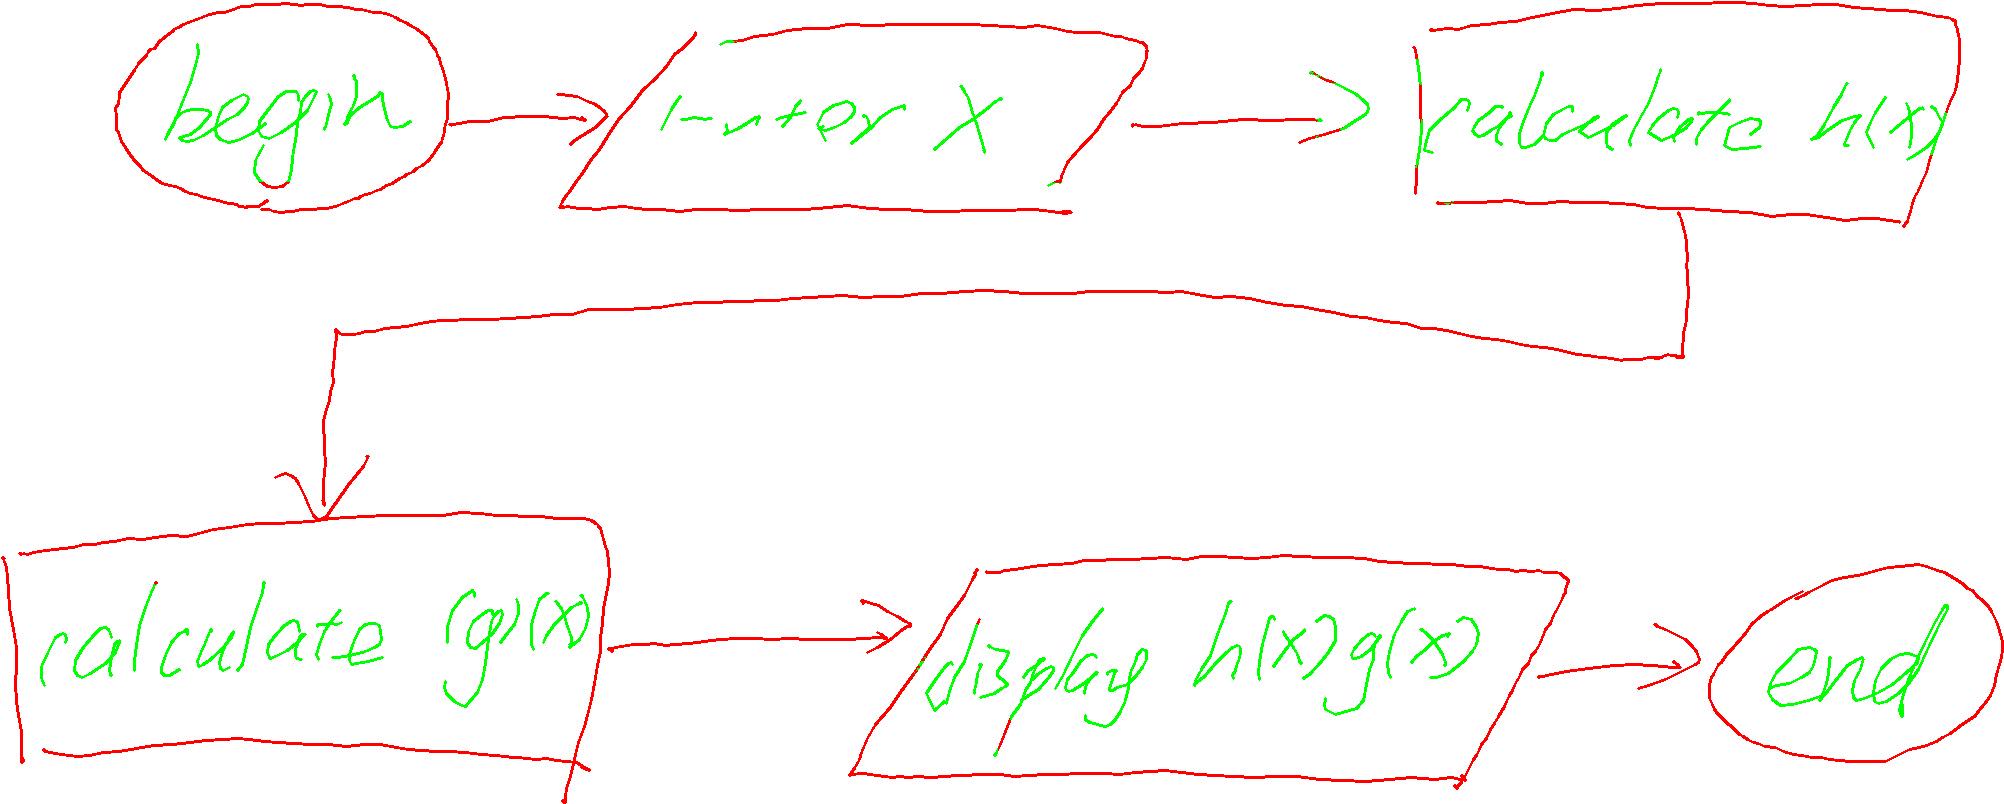 begin
enter x
calculate h(x)
calculate (g)(x)
display h(x)g(x)
end